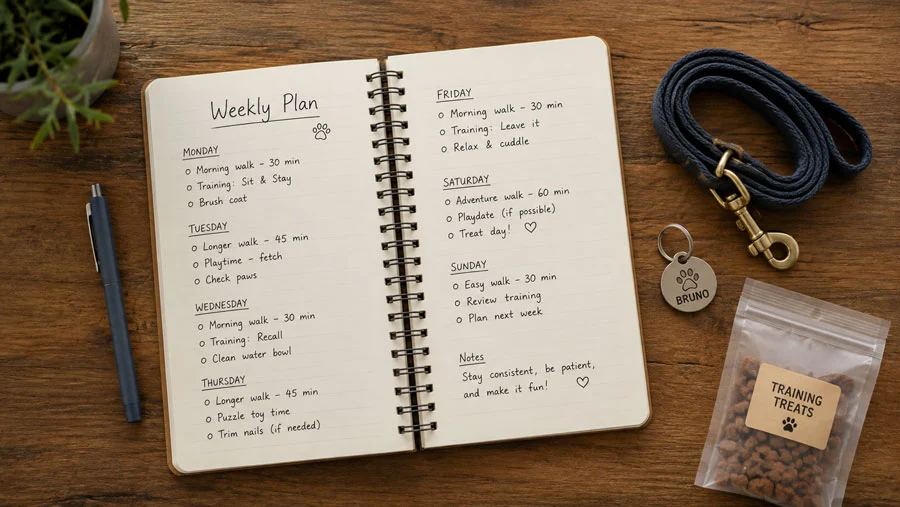 Weekly Plan
MONDAY
o Morning walk – 30 min
o Training: Sit & Stay
o Brush coat
TUESDAY
o Longer walk – 45 min
o Playtime – fetch
o Check paws
WEDNESDAY
o Morning walk – 30 min
o Training: Recall
o Clean water bowl
THURSDAY
o Longer walk – 45 min
o Puzzle toy time
o Trim nails (if needed)
FRIDAY
o Morning walk – 30 min
o Training: Leave it
o Relax & cuddle
SATURDAY
o Adventure walk – 60 min
o Playdate (if possible)
o Treat day! ♡
SUNDAY
o Easy walk – 30 min
o Review training
o Plan next week
Notes
Stay consistent, be patient,
and make it fun! ♡
BRUNO
TRAINING
TREATS